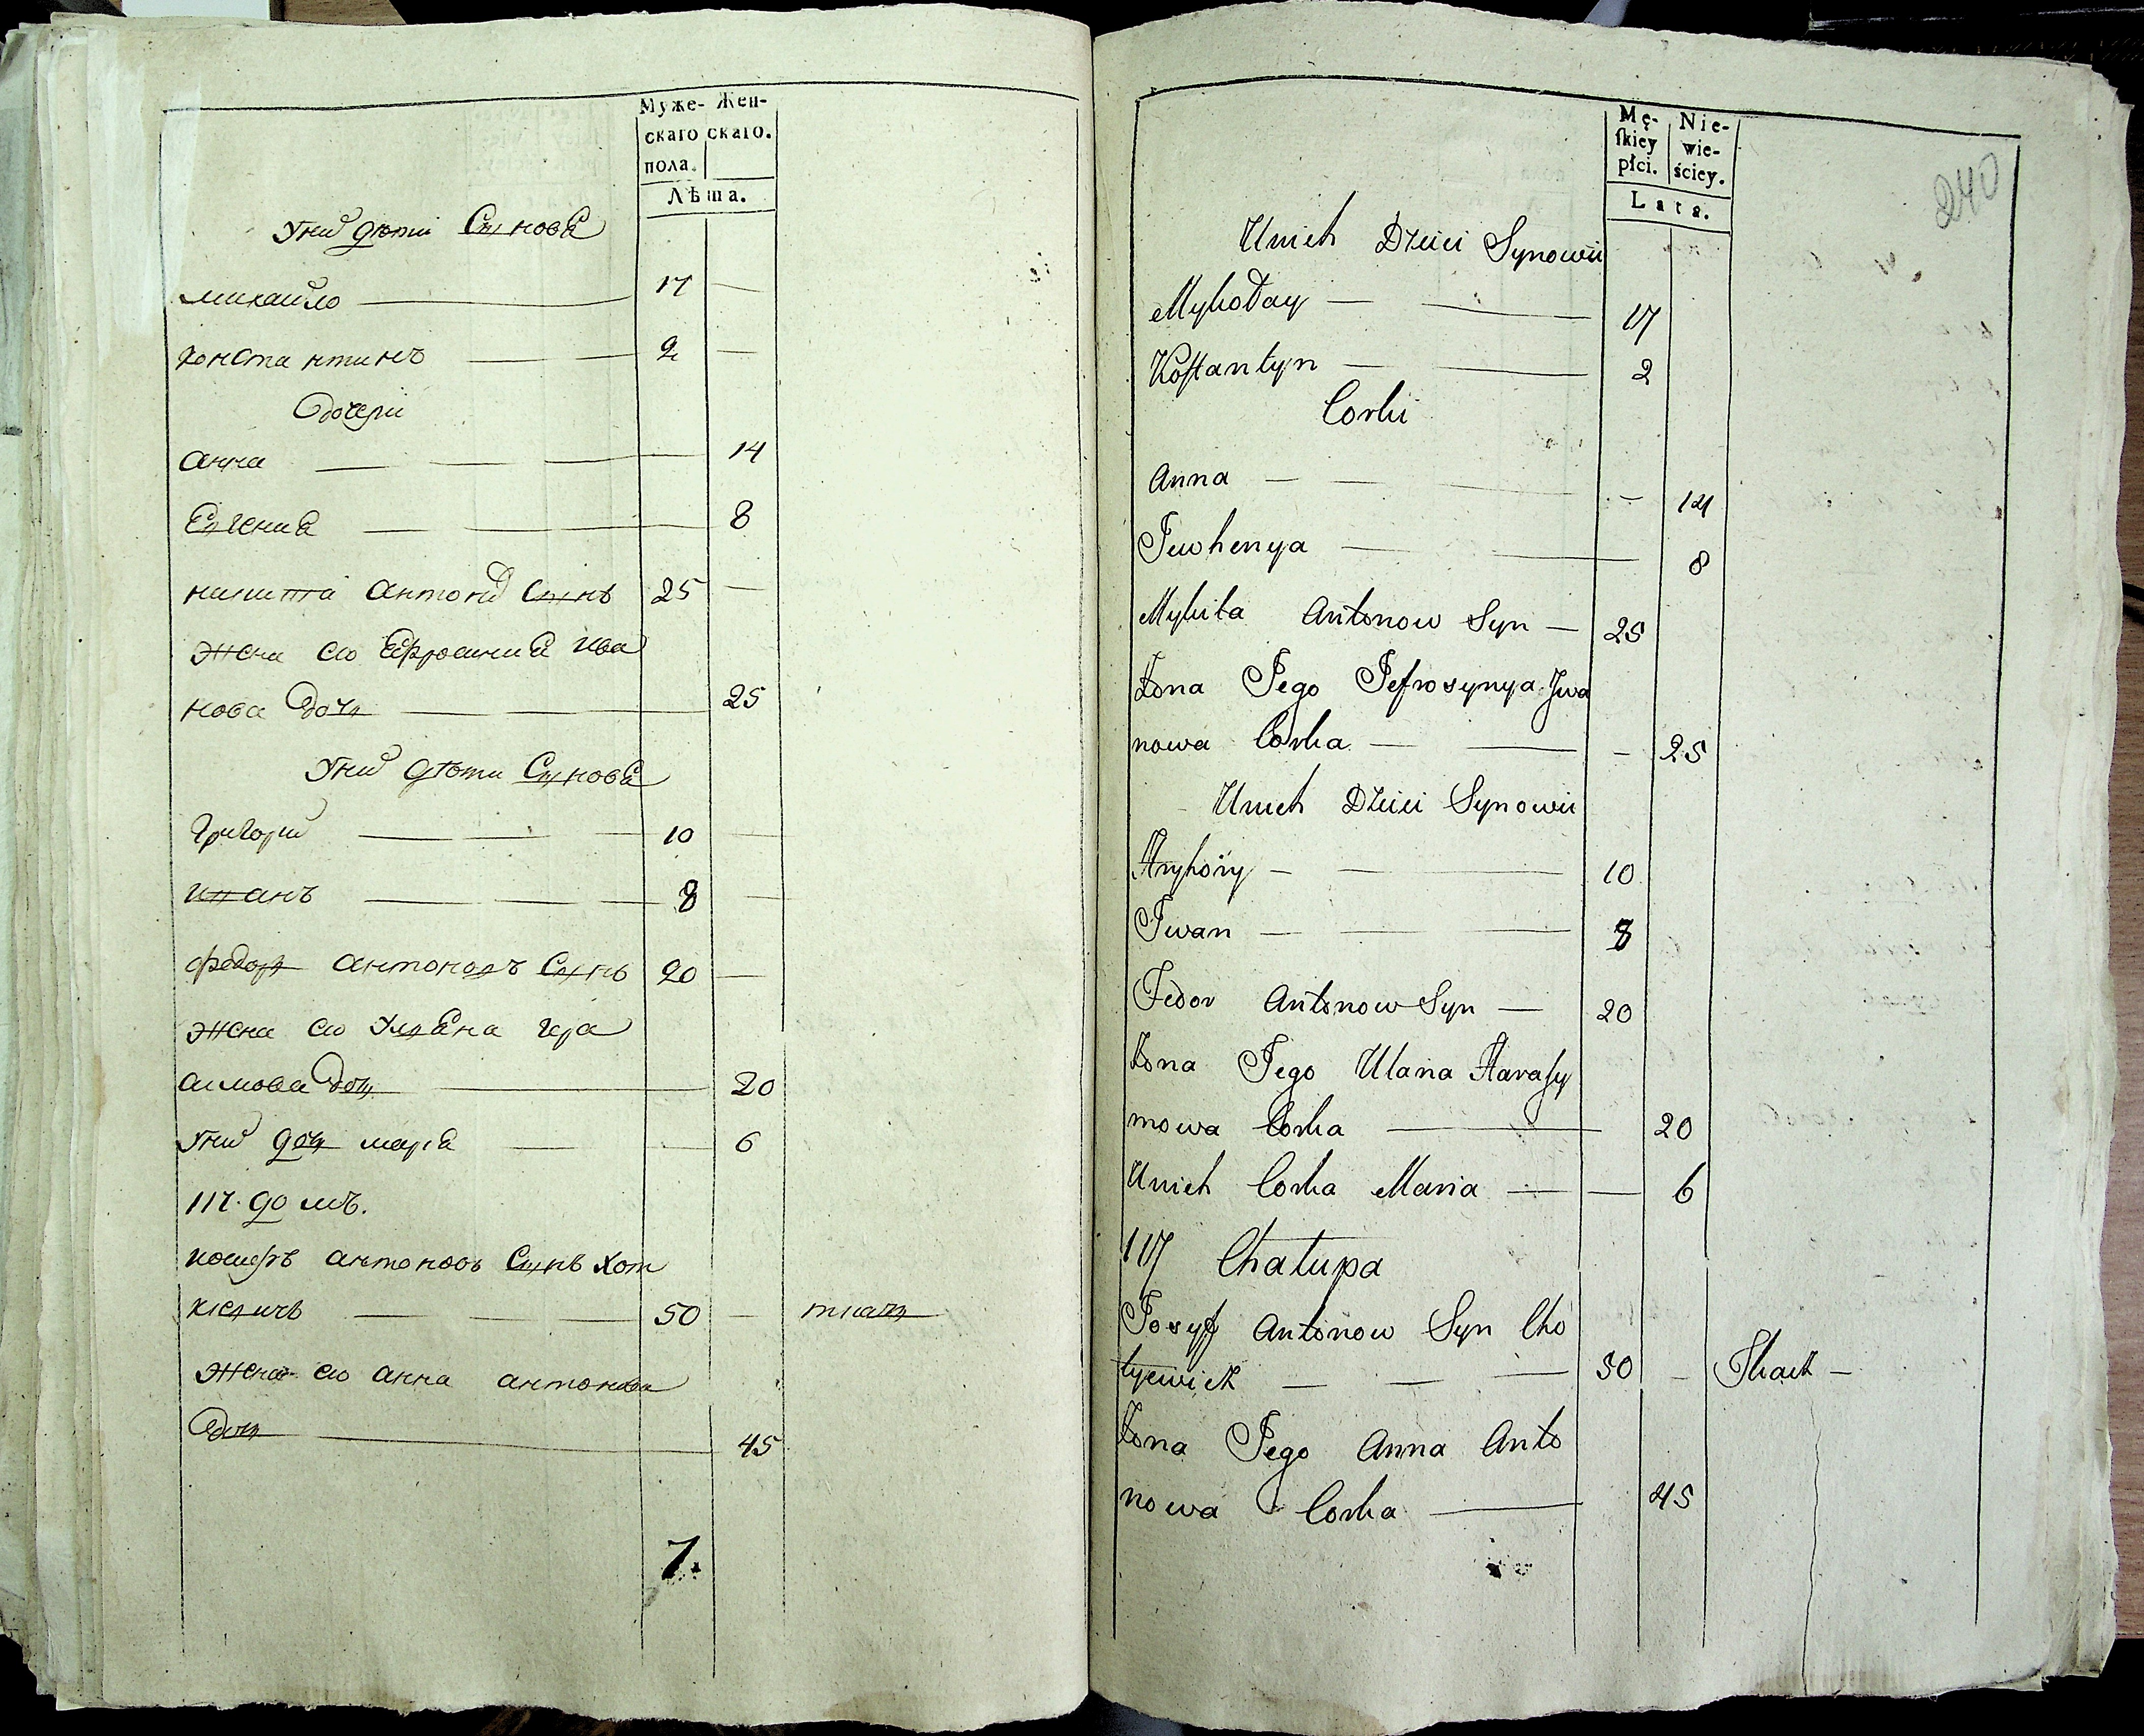 Муже- Жен-
скаго скаго.
пола.
Лѣта.
У них дѣти Синовя
михаило 17
константинъ 2
Дочери
анна 14
Евгения 8
никита антонов Синъ 25
жена его Ефросиния ива
нова Дочь 25
У них дѣти Синовя
Григорий 10
иванъ 8
федор антоновъ Синъ 20
жена его Уляна гера
симова Доч 20
У них доч мария 6
117 домъ.
иосифъ антоновъ Синъ Хот
кевичъ 50 ткачъ
жена его анна антонова
Доч 45
7.
Mę- Nie-
skiey wie-
płci. ściey.
Lata.
240
Unich Dzieci Synowii
Mykołay 17
Kostantyn 2
Corki
Anna 14
Jewhenya 8
Mykita Antonow Syn 25
Żona Jego Jefrosynya Jwa
nowa Corka 25
Unich Dzieci Synowii
Hryhory 10
Jwan 8
Fedor Antonow Syn 20
Żona Jego Ulana Harasy
mowa Corka 20
Unich Corka Maria 6
117 Chatupa
Josyf Antonow Syn Cho
tyewicz 50 Tkacz
Żona Jego Anna Anto
nowa Corka 45